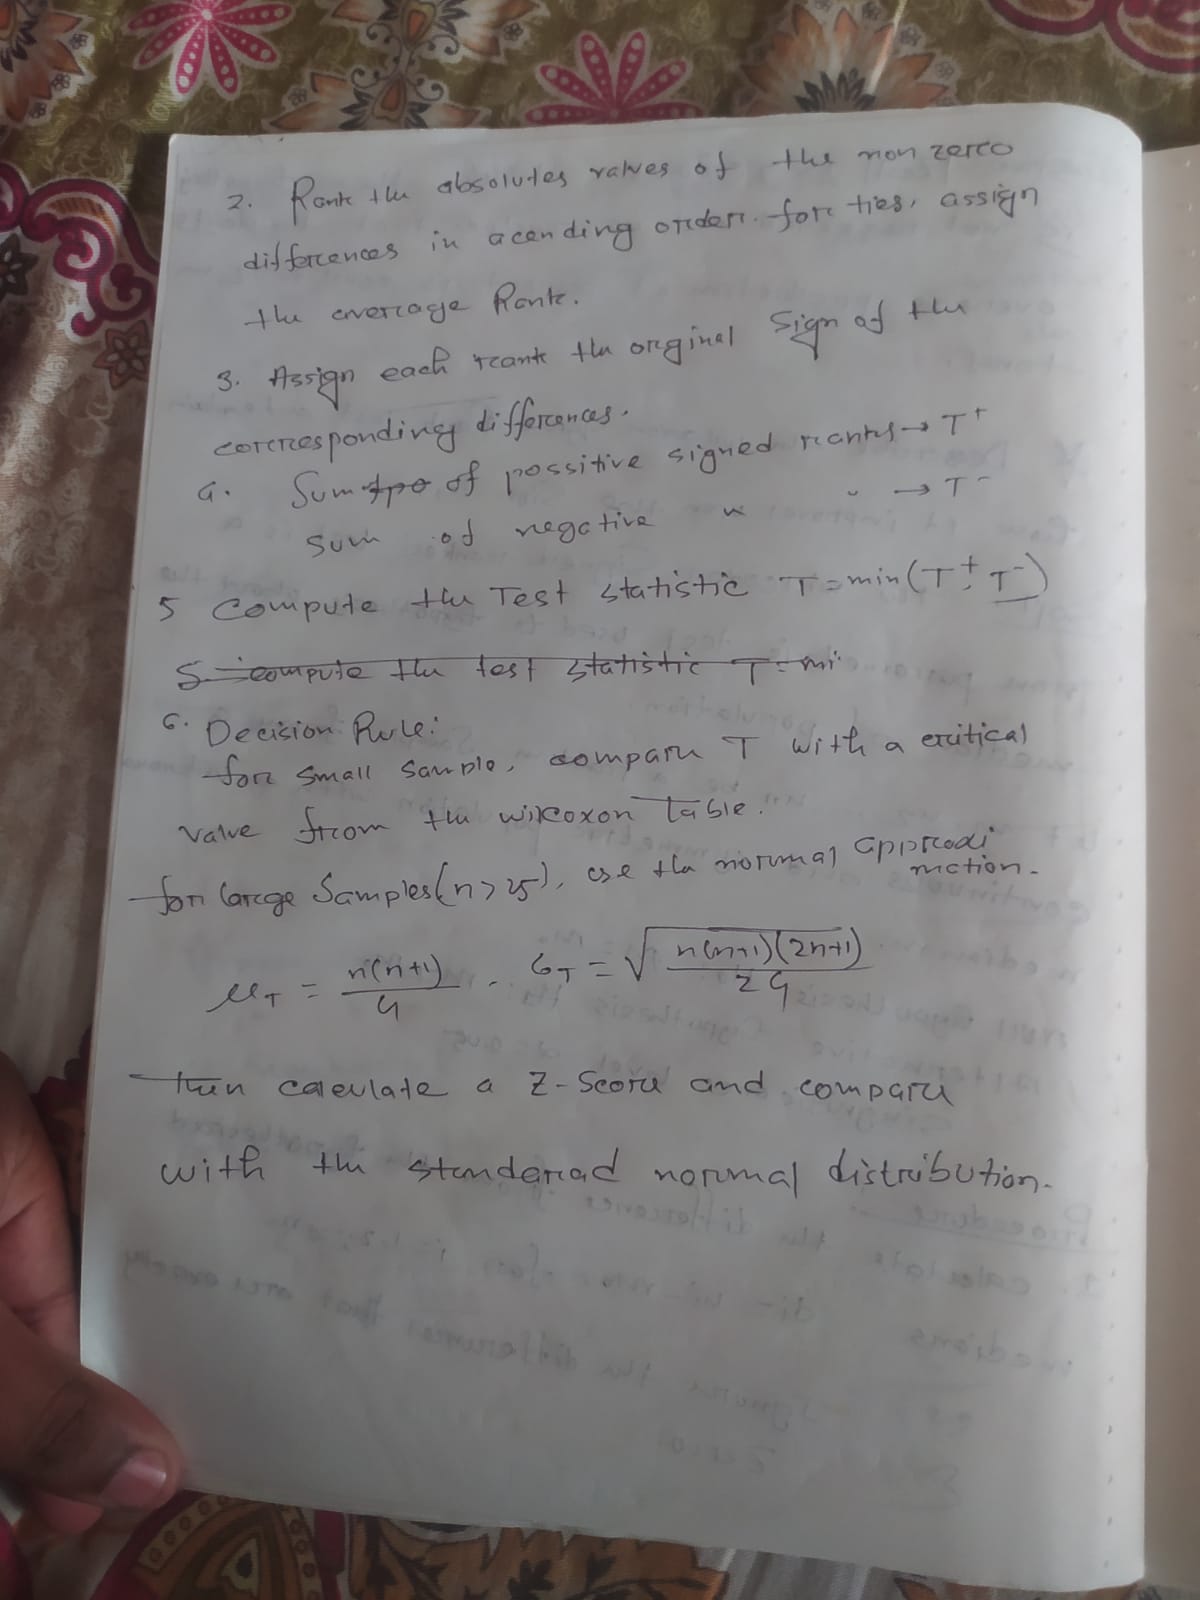 2. Rank the absolutes values of the non zero
differences in acending order. for ties, assign
the average Rank.
3. Assign each rank the orginal Sign of the
corresponding differences.
4. Sum of possitive signed ranks → T⁺
sum of negative " " → T⁻
5 Compute the Test statistic T = min(T⁺, T⁻)
5. compute the test statistic T = mi
6. Decision Rule:
for small sample, compare T with a critical
value from the wilcoxon Table.
for large Samples (n > 25), use the normal approxi
mation.
μ_T = n(n+1)/4 , σ_T = √(n(n+1)(2n+1)/24)
Then calculate a Z-Score and compare
with the standerad normal distribution.